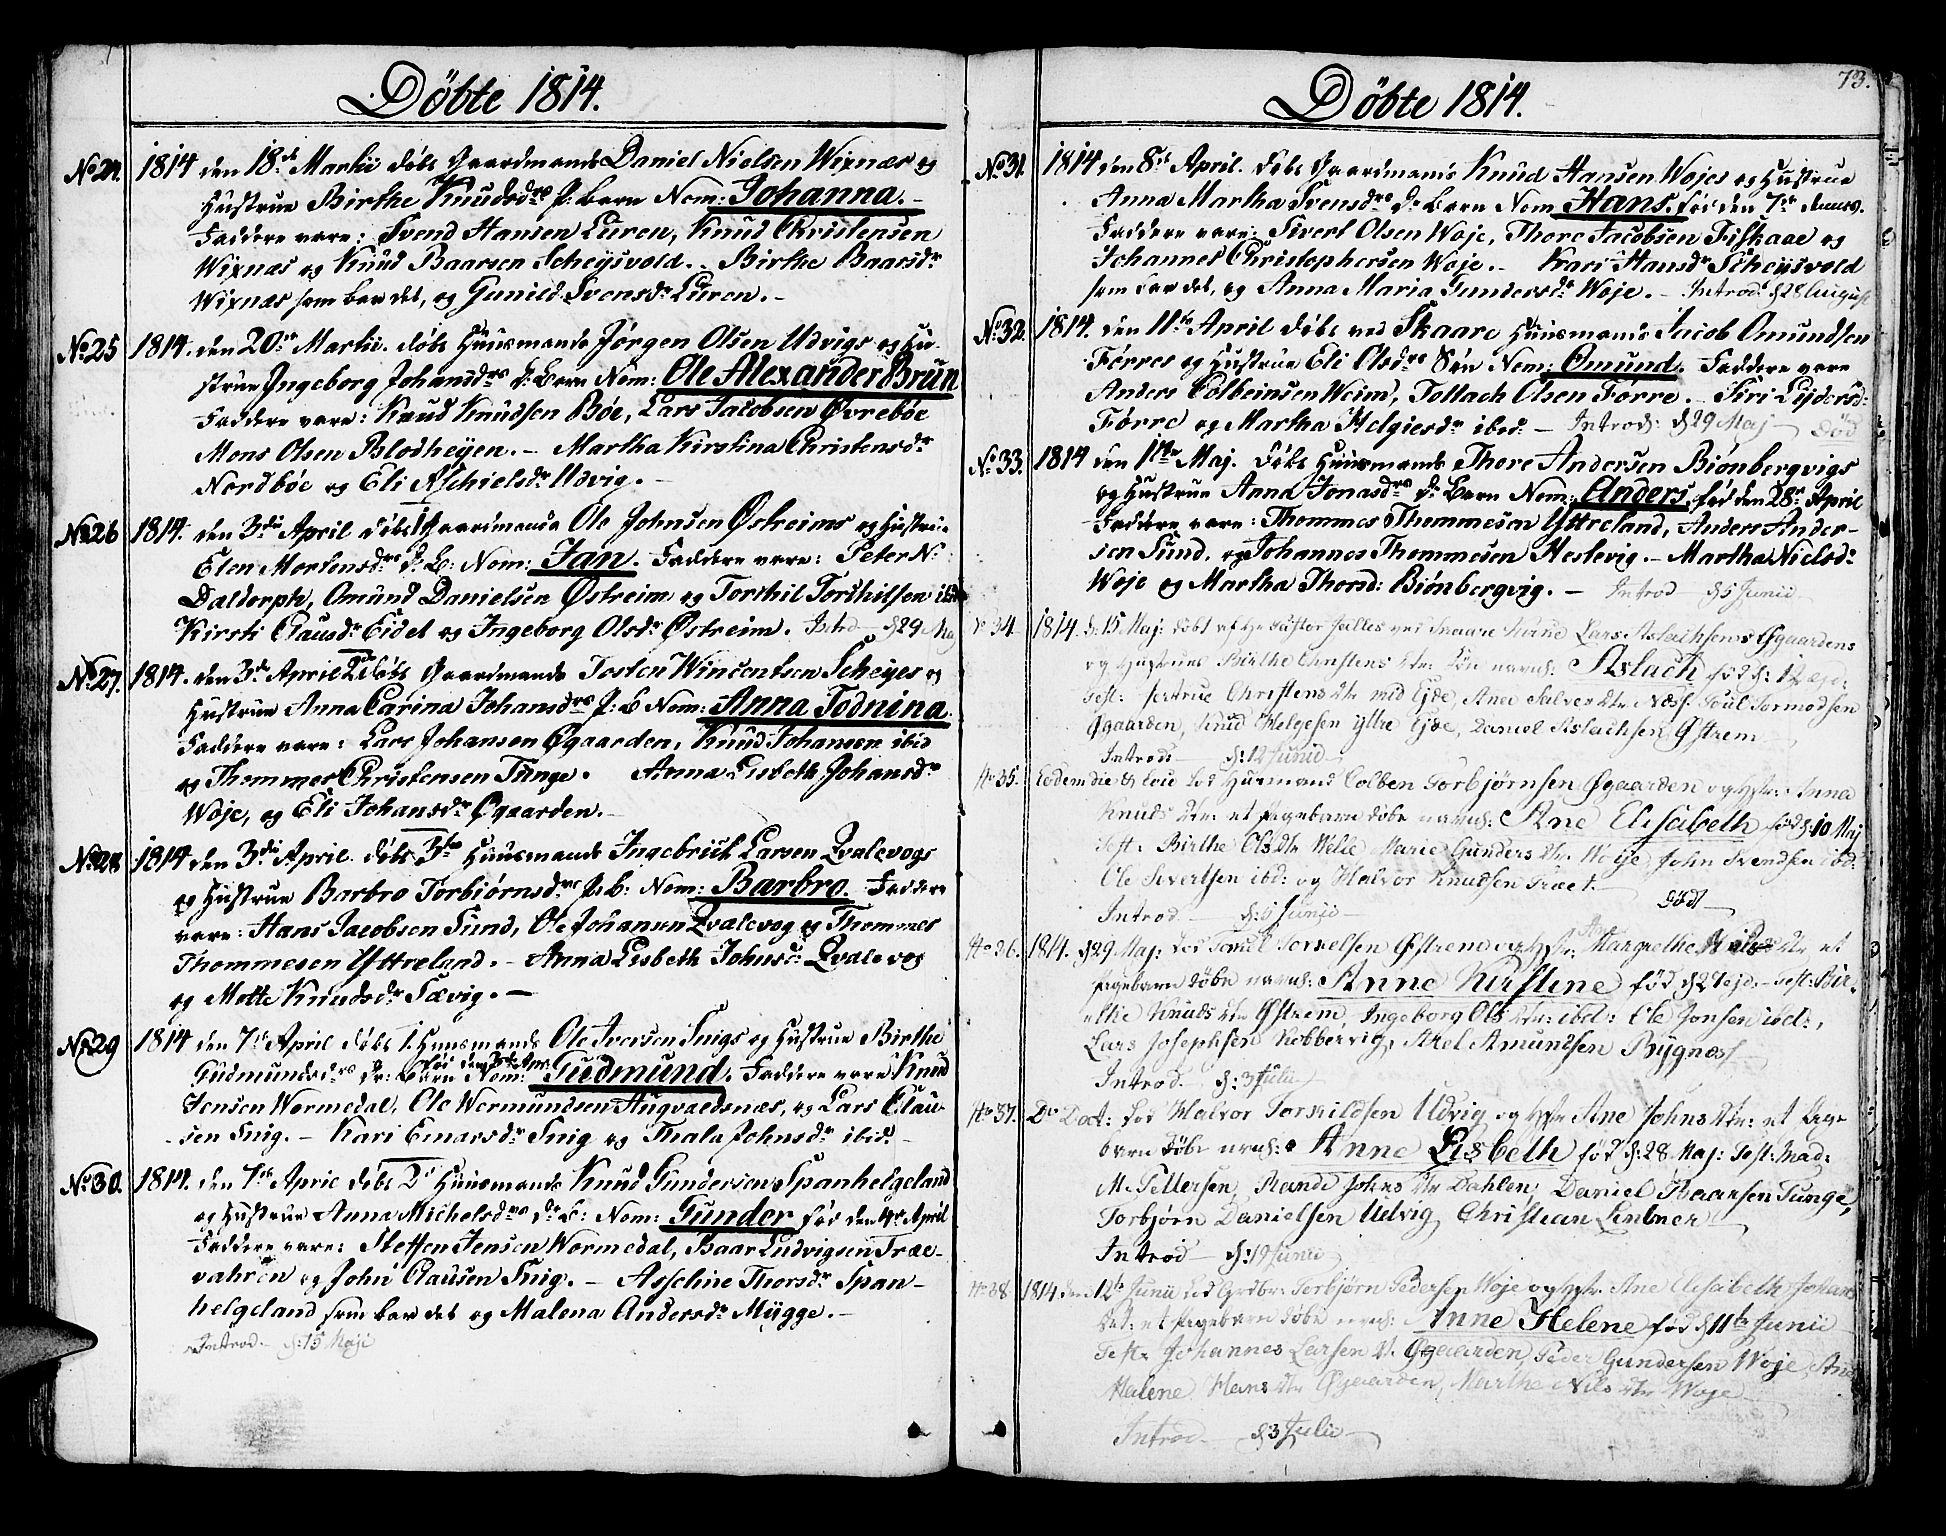 Döbte 1814.
No 24. 1814 den 18de Martii döbt Gaardmands Daniel Nielsen Wixnæs og
Hustrue Birthe Knudsdrs P: Barn Nom: Johanna. -
Faddere vare: Svend Hansen Luren, Knud Christensen
Wixnæs og Knud Baarsen Scheysvold. - Birthe Baarsdr
Wixnæs som bar det, og Gunild Svensdr Luren. -
No 25 1814. den 20de Martii. döbt Huusmands Jørgen Olsen Udvigs og Hu-
strue Ingeborg Johansdrs D: Barn Nom: Ole Alexander Brün
Faddere vare: Knud Knudsen Bøe, Lars Jacobsen Øvrebøe
Mons Olsen Blodheyen. - Martha Kirstina Christensdr
Nordbøe og Eli Aschielsdr Udvig. -
No 26 1814. den 3die April döbt 1 Gaardmands Ole Johnsen Østreims og Hustrue
Elen Mortensdrs D: B: Nom: Jan. Faddere vare: Peter N.
Daldorph, Omund Danielsen Østreim og Torkil Torkilsen ibid
Kirsti Clausdr Eidet og Ingeborg Olsdr Østreim. Introd d 29 Maj
No 27. 1814. den 3die April 2 döbt Gaardmands Tosten Wincentsen Scheyes og
Hustrue Anna Carina Johansdrs P: B Nom: Anna Todnina.
Faddere vare: Lars Johansen Øgaarden, Knud Johansen ibid
og Thommes Christensen Tunge. Anna Lisbeth Johansdr
Woje, og Eli Johansdr Øgaarden. -
No 28 1814 den 3die April. döbt 3die Huusmands Ingebrick Larsen Qvalevogs
og Hustrue Barbro Torbiørnsdrs P: b: Nom: Barbro. Faddere
vare: Hans Jacobsen Sund, Ole Johansen Qvalevog og Thommes
Thommesen Yttreland. - Anna Lisbeth Johnsd: Qvalevog
og Mette Knudsdr Sævig. -
No 29 1814 den 7de April döbt 1. Huusmands Ole Iversen Snigs og Hustrue Birthe
Gudmundsdrs Dr: Barn Nom: Gudmund. Faddere vare Knud
Jensen Wormedal, Ole Wermundsen Augvaldsnæs, og Lars Clau-
sen Snig. - Kari Emarsdr Snig og Thala Johnsdr ibid. -
No 30. 1814. den 7de April döbt 2d Huusmands Knud Gundersen Spanhelgeland
og Hustrue Anna Michelsdrs D: b: Nom: Gunder fød den 4de April
Faddere vare: Steffen Jensen Wormedal, Baar Ludvigsen Træe-
vahren og John Clausen Snig. - Asseline Thorsdr Span-
helgeland som bar det og Malena Andersdr Mygge. -
Introd. - d: 15 Maji
73.
Döbte 1814.
No 31. 1814 den 8de April. Döbt Gaardmands Knud Hansen Wojes og Hustrue
Anna Martha Svensdrs D: Barn Nom Hans. fød den 7de
Faddere vare: Sivert Olsen Woje, Thore Jacobsen Fiskaae og
Johannes Christophersen Woje. - Kari Hansdr Scheysvold
som bar det, og Anna Maria Gundersdr Woje. - Introd: d 28 August
No 32. 1814. den 11te April döbt ved Skaare Huusmands Jacob Omundsen
Førres og Hustrue Eli Olsdrs Søn Nom: Omund. Faddere vare
Anders Colbeinsen Weim, Tollach Olsen Førre. - Siri Lijdersd:
Førre og Martha Helgiesdr ibid. - Introd: d 29 Maj - Død
No 33. 1814 den 1ste Maj. döbt Huusmands Thore Andersen Biønbergvigs
og Hustrue Anna Jonasdrs D: Barn Nom: Anders. fød den 28de April
Faddere vare: Thommes Thommesen Yttreland, Anders Ander-
sen Sund, og Johannes Thommesen Heslevig. - Martha Nielsdr
Woje og Martha Thord: Biønbergvig. - Introd - d 5 Junii
No 34 1814. d: 15 Maj: döbt af Pastor ved Skaare Kirke Lars Aslachsens Øgaardens
og Hustrues Birthe Christens Dtr: Søn navnl: Aslach fød d: 12
Test: Sertrue Christens Dtr med Eyde, Ane Salves Dtr Næs, Poul Tormodsen
Øgaarden, Knud Helgesen Yttre Eyde, Daniel Aslachsen Østrem
Introd - d: 12 Junii
No 35. Eodem die Lod Huusmand Colben Torbjørnsen Øgaarden og Hustr: Anna
Knuds Dtr: et Pigebarn døbe navnl: Ane Elisabeth fød d: 10 Maj
Test: Birthe Ols Dtr Welie Marie Gunders Dtr: Woje, John Svendsen ibd:
Ole Sivertsen ibd: og Halvor Knudsen Træet.
Introd. - d: 5 Junii - Død
No 36. 1814. d 29 Maj: Lod Tornelsen Østrem og Hustr: Margrethe Dtr et
Pigebarn døbe navnl: Anne Kirstine fød d 24 ejd: - Test: Bir-
the Knuds Dtr Østrem, Ingeborg Ols Dtr: ibd: Ole Jonsen ibd:,
Lars Josephsen Kobbervig, Axel Amundsen Bygnæs.
Introd. d: 3 Julii
No 37. Do Dat: Lod Halvor Torkildsen Udvig og Hstr Ane Johns Dtr: et Pige
barn døbe navnl: Anne Lisbeth fød d: 28 Maj: Test: Mad:
M. Pettersen, Rande Johns Dtr Dahlen, Daniel Baarsen Tunge,
Torbjørn Danielsen Udvig, Christian Lintner
Introd - d: 19 Junii
No 38 1814 den 12te Junii Lod Grdbr: Torbjørn Pedersen Woje og Hstr. Ane Elisabeth Johans
Dtr: et Pigebarn døbe navnl: Anne Helene fød d 11te Junii
Test: Johannes Larsen V. Øgaarden, Peder Gundersen Woje, Ane
Malene Hans Dtr Øgaarden, Marthe Nils Dtr Woje
Introd - d 3 Julii